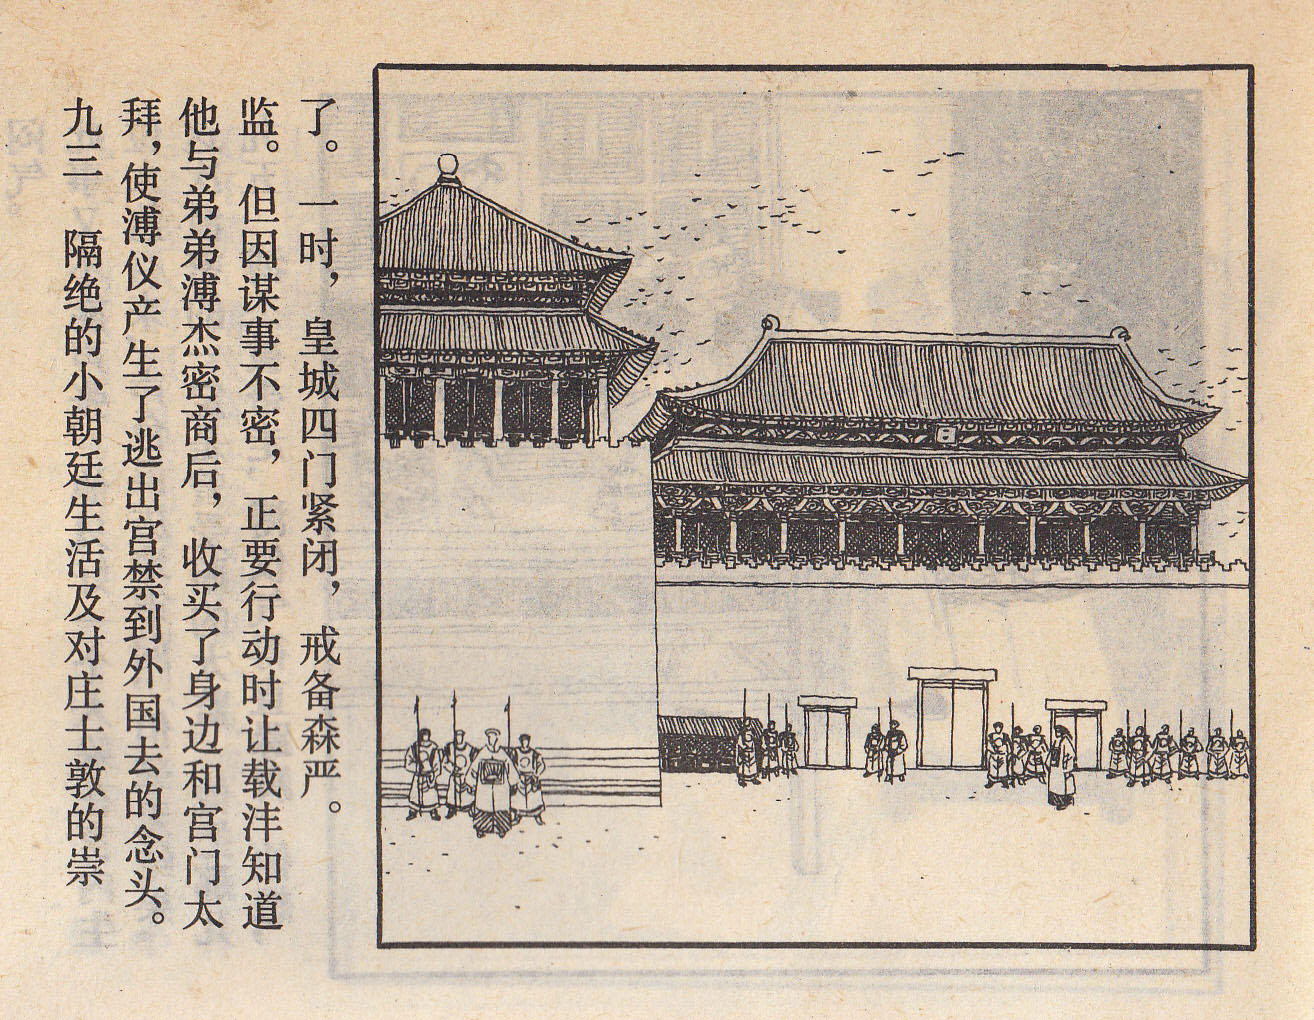 九三 隔绝的小朝廷生活及对庄士敦的崇
拜，使溥仪产生了逃出宫禁到外国去的念头。
他与弟弟溥杰密商后，收买了身边和宫门太
监。但因谋事不密，正要行动时让载沣知道
了。一时，皇城四门紧闭，戒备森严。